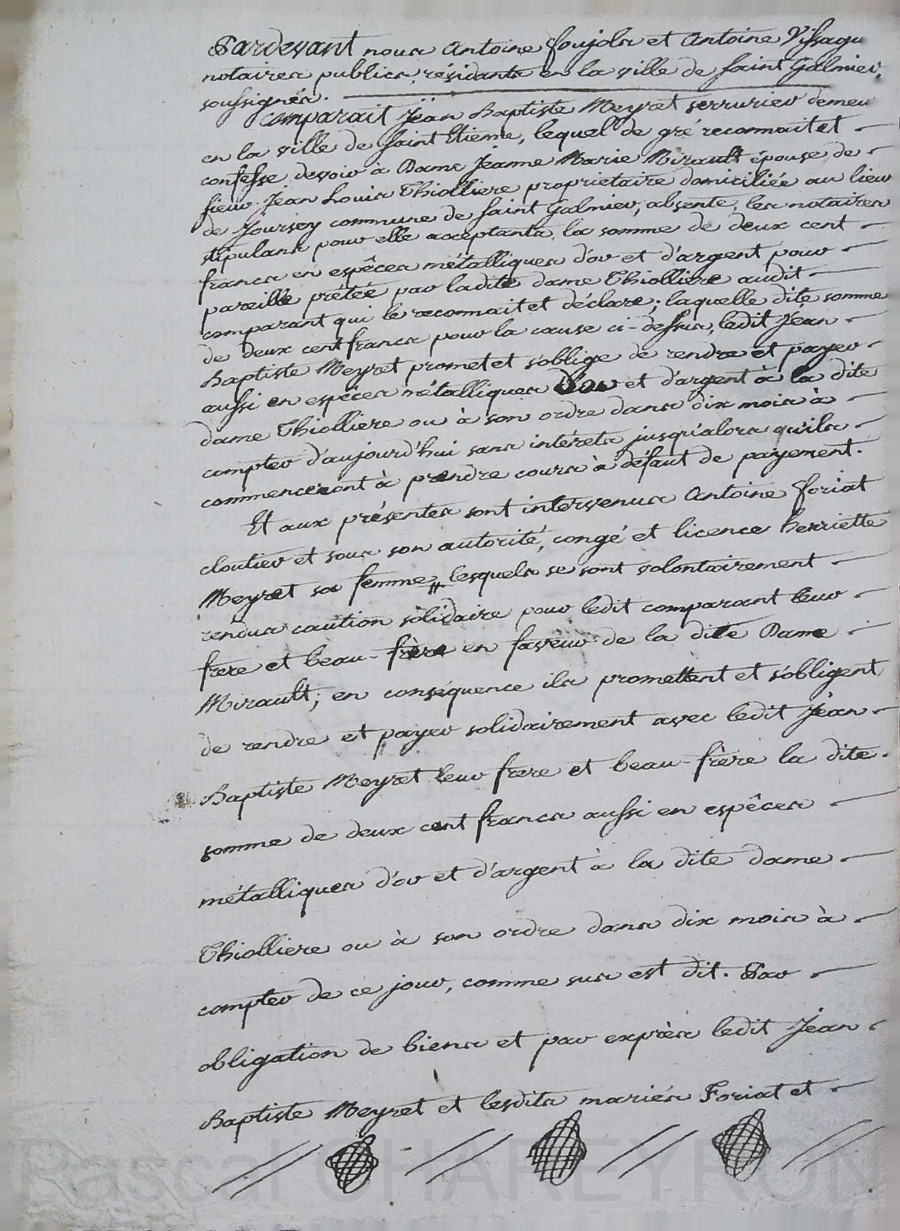 Pardevant nous Antoine Foujols et Antoine Vissagu
notaires publics, résidants en la ville de Saint Galmier,
soussignés.
Comparait Jean Baptiste Meyret serrurier demeu
en la ville de Saint Etienne, lequel de gré reconnait et
confesse devoir à Dame Jeanne Marie Mirault épouse de
sieur Jean Louis Thiolliere propriétaire domiciliée au lieu
de Joursey commune de Saint Galmier, absente, les notaires
stipulant pour elle acceptants, la somme de deux cent
francs en espêces métalliques d'or et d'argent pour
pareille prêtée par ladite dame Thiolliere audit
comparant qui le reconnait et déclare; laquelle dite somme
de deux cent francs pour la cause ci-dessus, ledit Jean
Baptiste Meyret promet et s'oblige de rendre et payer
aussi en espêces métalliques d'or et d'argent à la dite
dame Thiolliere ou à son ordre dans dix mois à
compter d'aujourd'hui sans intérets jusqu'alors qu'ils
commenceront à prendre cours à défaut de payement.
Et aux présentes sont intervenus Antoine Foriat
cloutier et sous son autorité, congé et licence henriette
Meyret sa femme, lesquels se sont volontairement
rendus caution solidaire pour ledit comparant leur
frere et beau-frère en faveur de la dite Dame
Mirault; en conséquence ils promettent et s'obligent
de rendre et payer solidairement avec ledit Jean
Baptiste Meyret leur frere et beau-frère la dite
somme de deux cent francs aussi en espêces
métalliques d'or et d'argent à la dite dame
Thiolliere ou à son ordre dans dix mois à
compter de ce jour, comme sus est dit. Par
obligation de biens et par exprès ledit Jean
Baptiste Meyret et lesdits mariés Foriat et
Pascal CHAREYRON